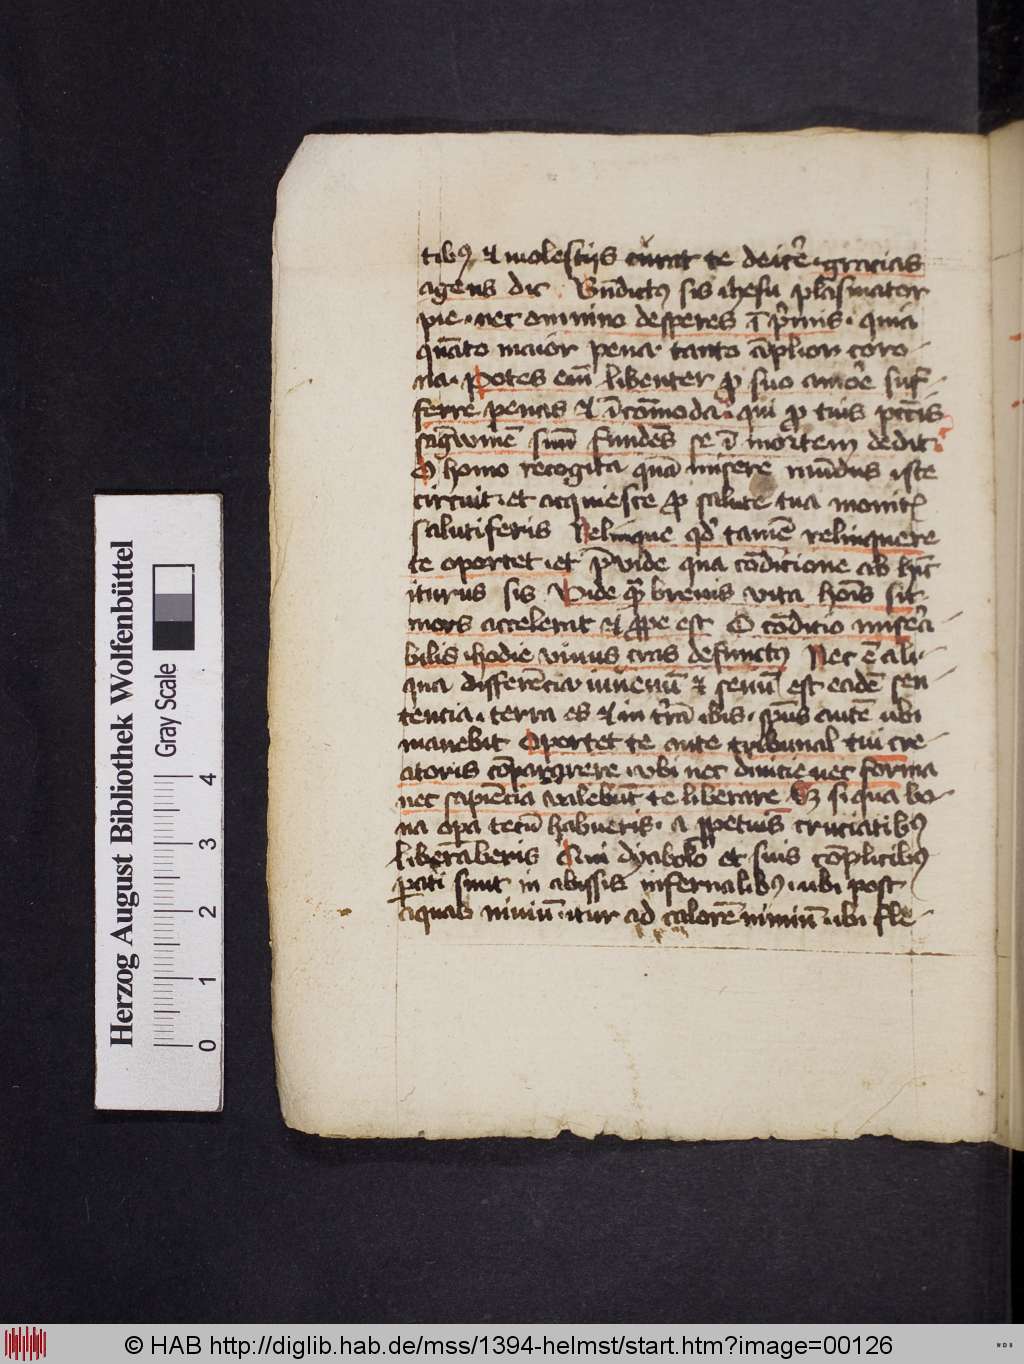 tibꝰ et molestijs curat te deicꝰe gracias
agens dic Bn̄dictꝰ sis ihesu plasmator
pie nec omnino desperes ī pꝰmis quia
quāto maior pena tanto āplior coro-
na Potes em̄ libenter ꝓ suo amoꝰe suf-
ferre penas et īcōmoda qui ꝓ tuis pctīs
sagwinē suū fundēs se ī mortem dedit
O homo recogita quā misere mūdus iste
circuit et acquiesce ꝓ salute tua monitꝭ
salutiferis Relinque qđ tamē relinquere
te oportet et p̄uide qua cōdicione ab hīc
iturus sis Vide qꝫ brevis vita hoīs sit
mors accelerat et ꝓpe est O cōdicio miseꝰa
bilis hodie vivus cras defunctꝰ Nec ē ali-
qua differēcia iuvenū et senū est eadē sen-
tencia terra es et in tꝰrā ibis spūs autē ubi
manebit Oportet te ante tribunal tui cre-
atoris cōparere ubi nec divicie nec forma
nec sapiēcia valebūt te liberare Sꝫ si qua bo-
na oꝑa tecū habueris a ꝑpetuis cruciatibꝰ
liberaberis Qui dyabolo et suis cōplicibꝰ
ꝑati sunt in abissis infernalibꝰ ubi post
aquas niviū itur ad calorē nimiū ubi fle-
Herzog August Bibliothek Wolfenbüttel
Gray Scale
0 1 2 3 4
© HAB http://diglib.hab.de/mss/1394-helmst/start.htm?image=00126